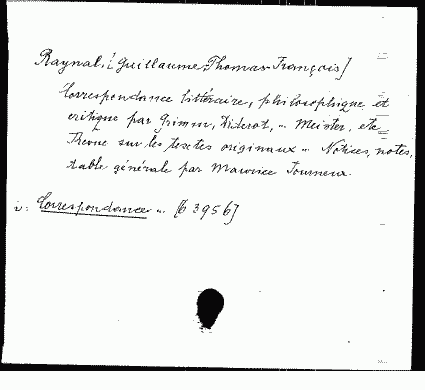 Raynal, [Guillaume-Thomas-François]
Correspondance littéraire, philosophique et
critique par Grimm, Diderot, ... Meister, etc
Revue sur les textes originaux ... Notices, notes,
table générale par Maurice Tourneux.
v: Correspondance ... [6 3956]